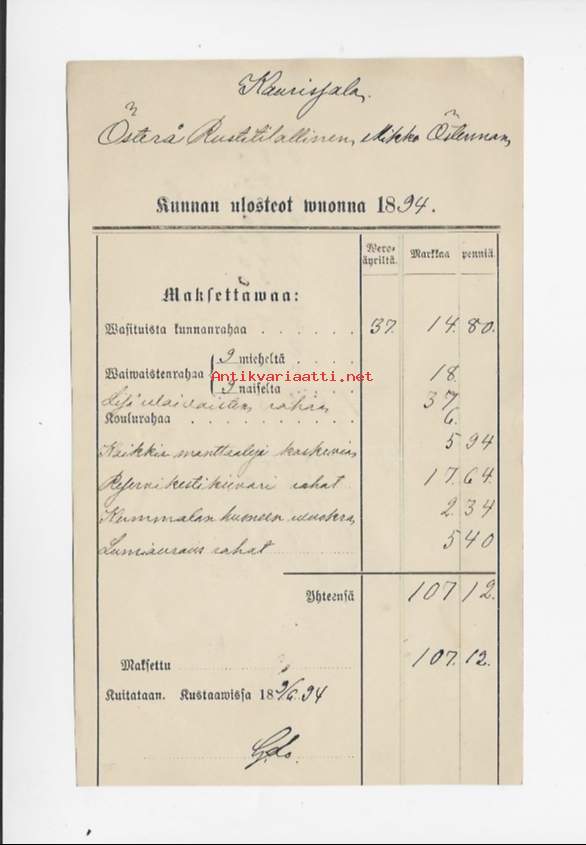 Kaurissalo.
Österå Rustitilallinen, Mikko Österman,
Kunnan ulosteot wuonna 1894.
Wero-äyriltä. Markkaa penniä.
Maksettawaa:
Wasituista kunnanrahaa . . . . . . 37. 14. 80.
Waiwaistenrahaa 9 mieheltä . . . . 18.
9 naiselta . . . .
Antikvariaatti.net
Lisä waivaisten rahaa 37
Koulurahaa . . . . . . . . . 6.
Kaikkia manttaaleja koskevia 5 94
Reservi kestikievari rahat 17. 64.
Kummalan huoneen vuokra, 2. 34
Lumiauraus rahat 5 40
Yhteensä 107 12.
Maksettu 107. 12.
Kuitataan. Kustaawissa 18 9/6. 94